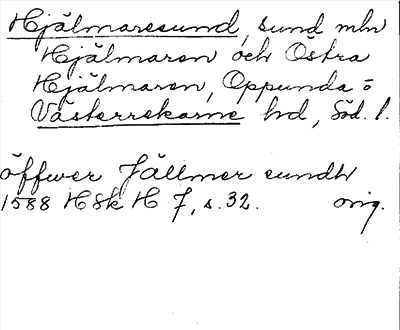 Hjälmaresund, sund mln
Hjälmaren och Östra
Hjälmaren, Oppunda o
Västerrekarne hd, Söd. l.
öffwer Jällmer sundh
1588 HSk H 7, s. 32. orig.